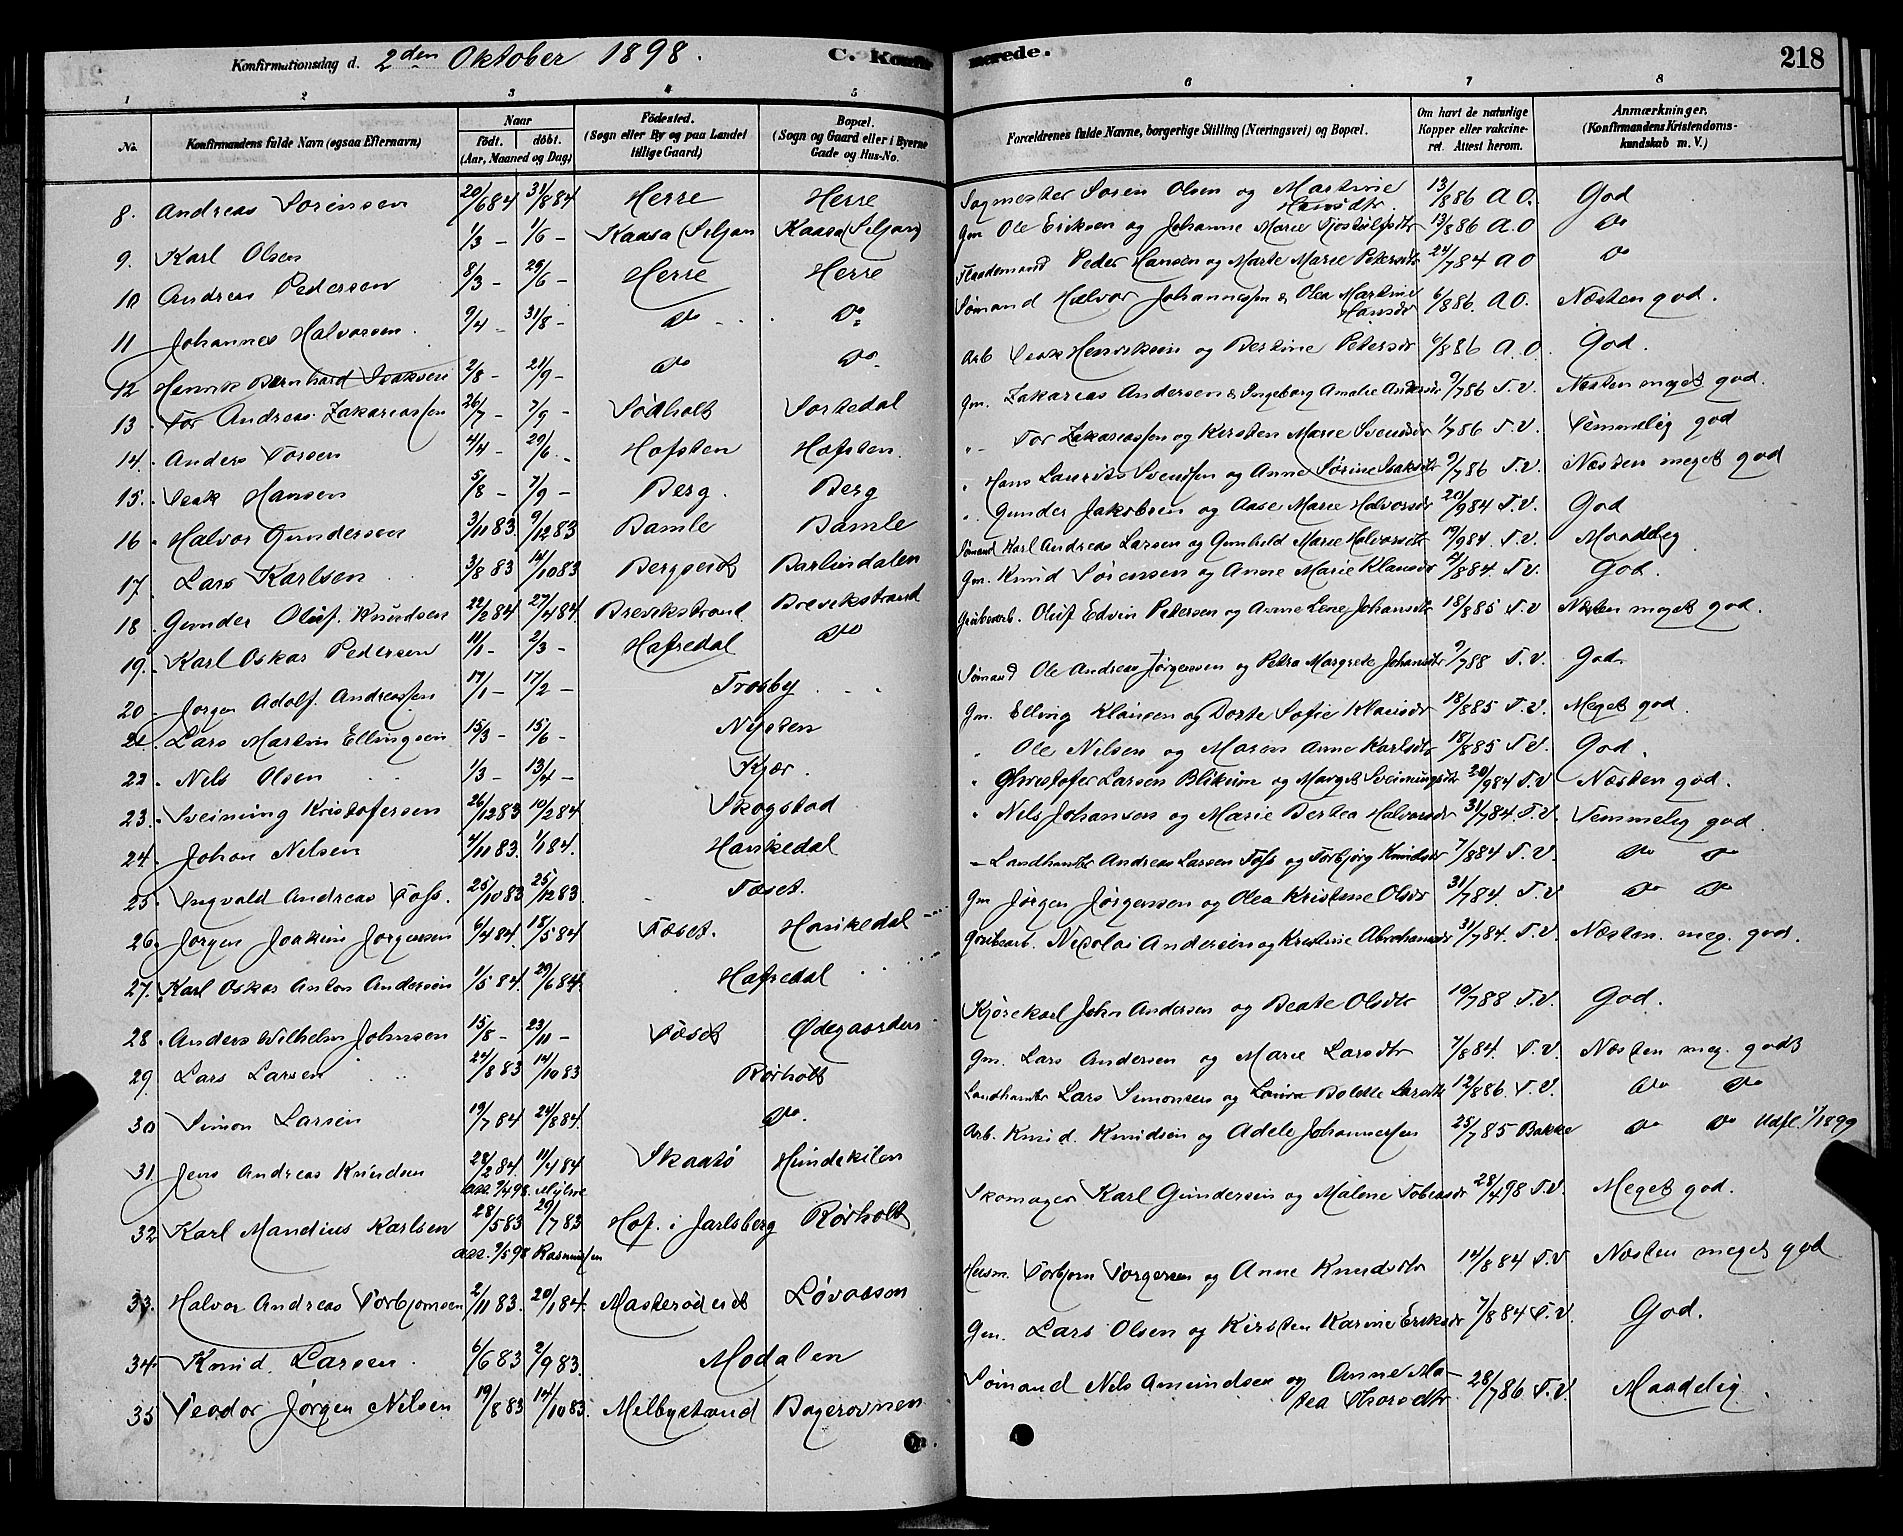 Konfirmationsdag d. 2den Oktober 1898. C. Konfirmerede. 218
1 2 3 4 5 6 7 8
No. Konfirmandens fulde Navn (ogsaa Efternavn) Naar födt. döbt. (Aar, Maaned og Dag) Födested. (Sogn eller By og paa Landet tillige Gaard) Bopæl. (Sogn og Gaard eller i Byerne Gade og Hus-No. Forældrenes fulde Navne, borgerlige Stilling (Næringsvei) og Bopæl. Om havt de naturlige Kopper eller vakcineret. Attest herom. Anmærkninger. (Konfirmandens Kristendomskundskab m. V.)
8. Andreas Sørensen 20/6 84 31/8 84 Herre Herre Sagmester Søren Olsen og Martine Hansdtr 13/8 86 A O. God
9. Karl Olsen 1/3 - 1/6 - Kaasa (Siljan) Kaasa (Siljan) Gm. Ole Eriksen og Johanne Marie Tjostolfsdtr 13/8 86 A. O do
10 Andreas Pedersen 8/3 - 29/6 - Herre Herre Peder Hansen og Marte Marie Petersdtr 24/7 84 A O do
11 Johannes Halvorsen. 9/4 - 31/8 - do do Sømand Halvor Johannessen & Olea Martine Hansdtr 6/8 86. A O. Næsten god.
12 Henrik Bernhard Isaksen 2/8 - 21/9 - do do Arb Isak Henriksen og Bertine Petersdtr 6/8 86 A. O. God.
13. Tor Andreas Zakariassen 26/7 - 7/9 - Sødholt Sortedal Gm. Zakarias Andersen & Ingeborg Amalie Andersdtr 9/7 86 T. V. Næsten meget god.
14. Anders Torsen 4/4 - 29/6 - Hofsten Hofsten. " Tor Zakariassen og Kirsten Marie Svendsdtr 1/7 86 T. V. Temmelig god
15. Isak Hansen 5/8 - 7/9 - Berg. Berg " Hans Laurits Svendsen og Anne Sørine Isaksdtr 9/7 86 T. V. Næsten meget god
16. Halvor Gundersen 3/11 83. 9/12 83 Bamle Bamle " Gunder Jakobsen og Aase Marie Halvorsdtr 20/9 84 T. V. God
17. Lars Karlsen 3/8 83 14/10 83 Bergeret Barlindalen Sømand Karl Andreas Larsen og Gunhild Marie Halvorsdtr 19/9 84. T. V. Maadelig
18. Gunder Oluf Knudsen 22/2 84 27/4 84 Brevikstrand. Brevikstrand Gm. Knud Sørensen og Anne Marie Klausdtr /8 84. T. V. God.
19. Karl Oskar Pedersen 11/1 - 2/3 - Hafredal do Grubearb. Oluf Edvin Petersen og Anne Lene Johansdtr 18/8 85 T. V Næsten meget god.
20. Jørgen Adolf Andreassen 17/1 - 17/2 - Trosby Sømand Ole Andreas Jørgensen og Petra Margrete Johansdtr 9/7 88 T. V. God
21. Lars Martin Ellingsen 15/3 - 15/6 - Nysten Gm. Elling Klausen og Dorte Sofie Klausdtr 18/8 85 T. V. Meget god.
22. Nils Olsen 1/3 - 13/4 - Kjær. " Ole Nilsen og Maren Anne Karlsdtr 18/8 85 T V. God.
23. Sveinung Kristofersen 26/12 83 10/2 84 Skogstad " Christofer Larsen Blikum og Marget Sveinungsdtr 20/9 84 T. V Næsten god.
24. Johan Nilsen 4/11 83. 1/1 84. Hankedal " Nils Johansen og Marie Bertea Halvorsdtr 31/7 84. T. V. Temmelig god.
25. Ingvald Andreas Foss. 25/10 83 25/12 83. Toset. - Landhandler Andreas Larsen Foss og Torbjørg Knudsdtr 7/8 84 T. V. do do
26. Jørgen Joakim Jørgensen 6/4 84. 18/5 84 Toset. Hankedal Gm Jørgen Jørgensen og Olea Kristine Olsdtr 31/7 84. T. V do do
27. Karl Oskar Anton Andersen 1/5 84. 29/6 84. Hafredal Grubearb. Nicolai Andersen og Kristine Abrahamsdtr 31/7 84. T. V. Næsten. meg. god.
28. Anders Wilhelm Johnsen 15/8 - 23/11 - Toset Ødegaarden Kjørekarl John Andersen og Beate Olsdtr 19/7 88 T. V. God.
29. Lars Larsen 24/8 83 14/10 83 Rørholt Gm. Lars Andersen og Marie Larsdtr 7/8 84. T. V. Næsten meg. godt
30. Simon Larsen 19/7 84 24/8 84. do. Landhandler Lars Simonsen og Laura Bolette Larsdtr 12/8 86. T. V. do do
31. Jens Andreas Knudsen 28/2 84. 11/4 84 Skaatø Hundekilen Arb. Knud Knudsen og Adele Johannessen 25/7 85 Bakke do do Udfl. 1/1 1899
att. 9/4 98.
32 Karl Mandius Karlsen 28/5 83 29/7 83 Hof. i Jarlsberg Rørholt Skomager Karl Gundersen og Malene Tobiasdtr 28/4 98 T. V. Meget god.
att. 9/5 98 Rasmussen
33. Halvor Andreas Torbjørnsen 2/11 83. 20/1 84. Masterødveret Løvaasen Husm. Torbjørn Torgersen og Anne Knudsdtr 14/8 84 T. V Næsten meget god
34. Knud Larsen. 6/6 83 2/9 83. Modalen Gm. Lars Olsen og Kirsten Karine Eriksdtr 7/8 84 T. V. God.
35 Teodor Jørgen Nilsen 19/8 83 14/10 83. Melbystrand Bagerovnen Sømand Nils Amundsen og Anne Matea Thorsdtr 28/7 86 T. V. Maadelig.